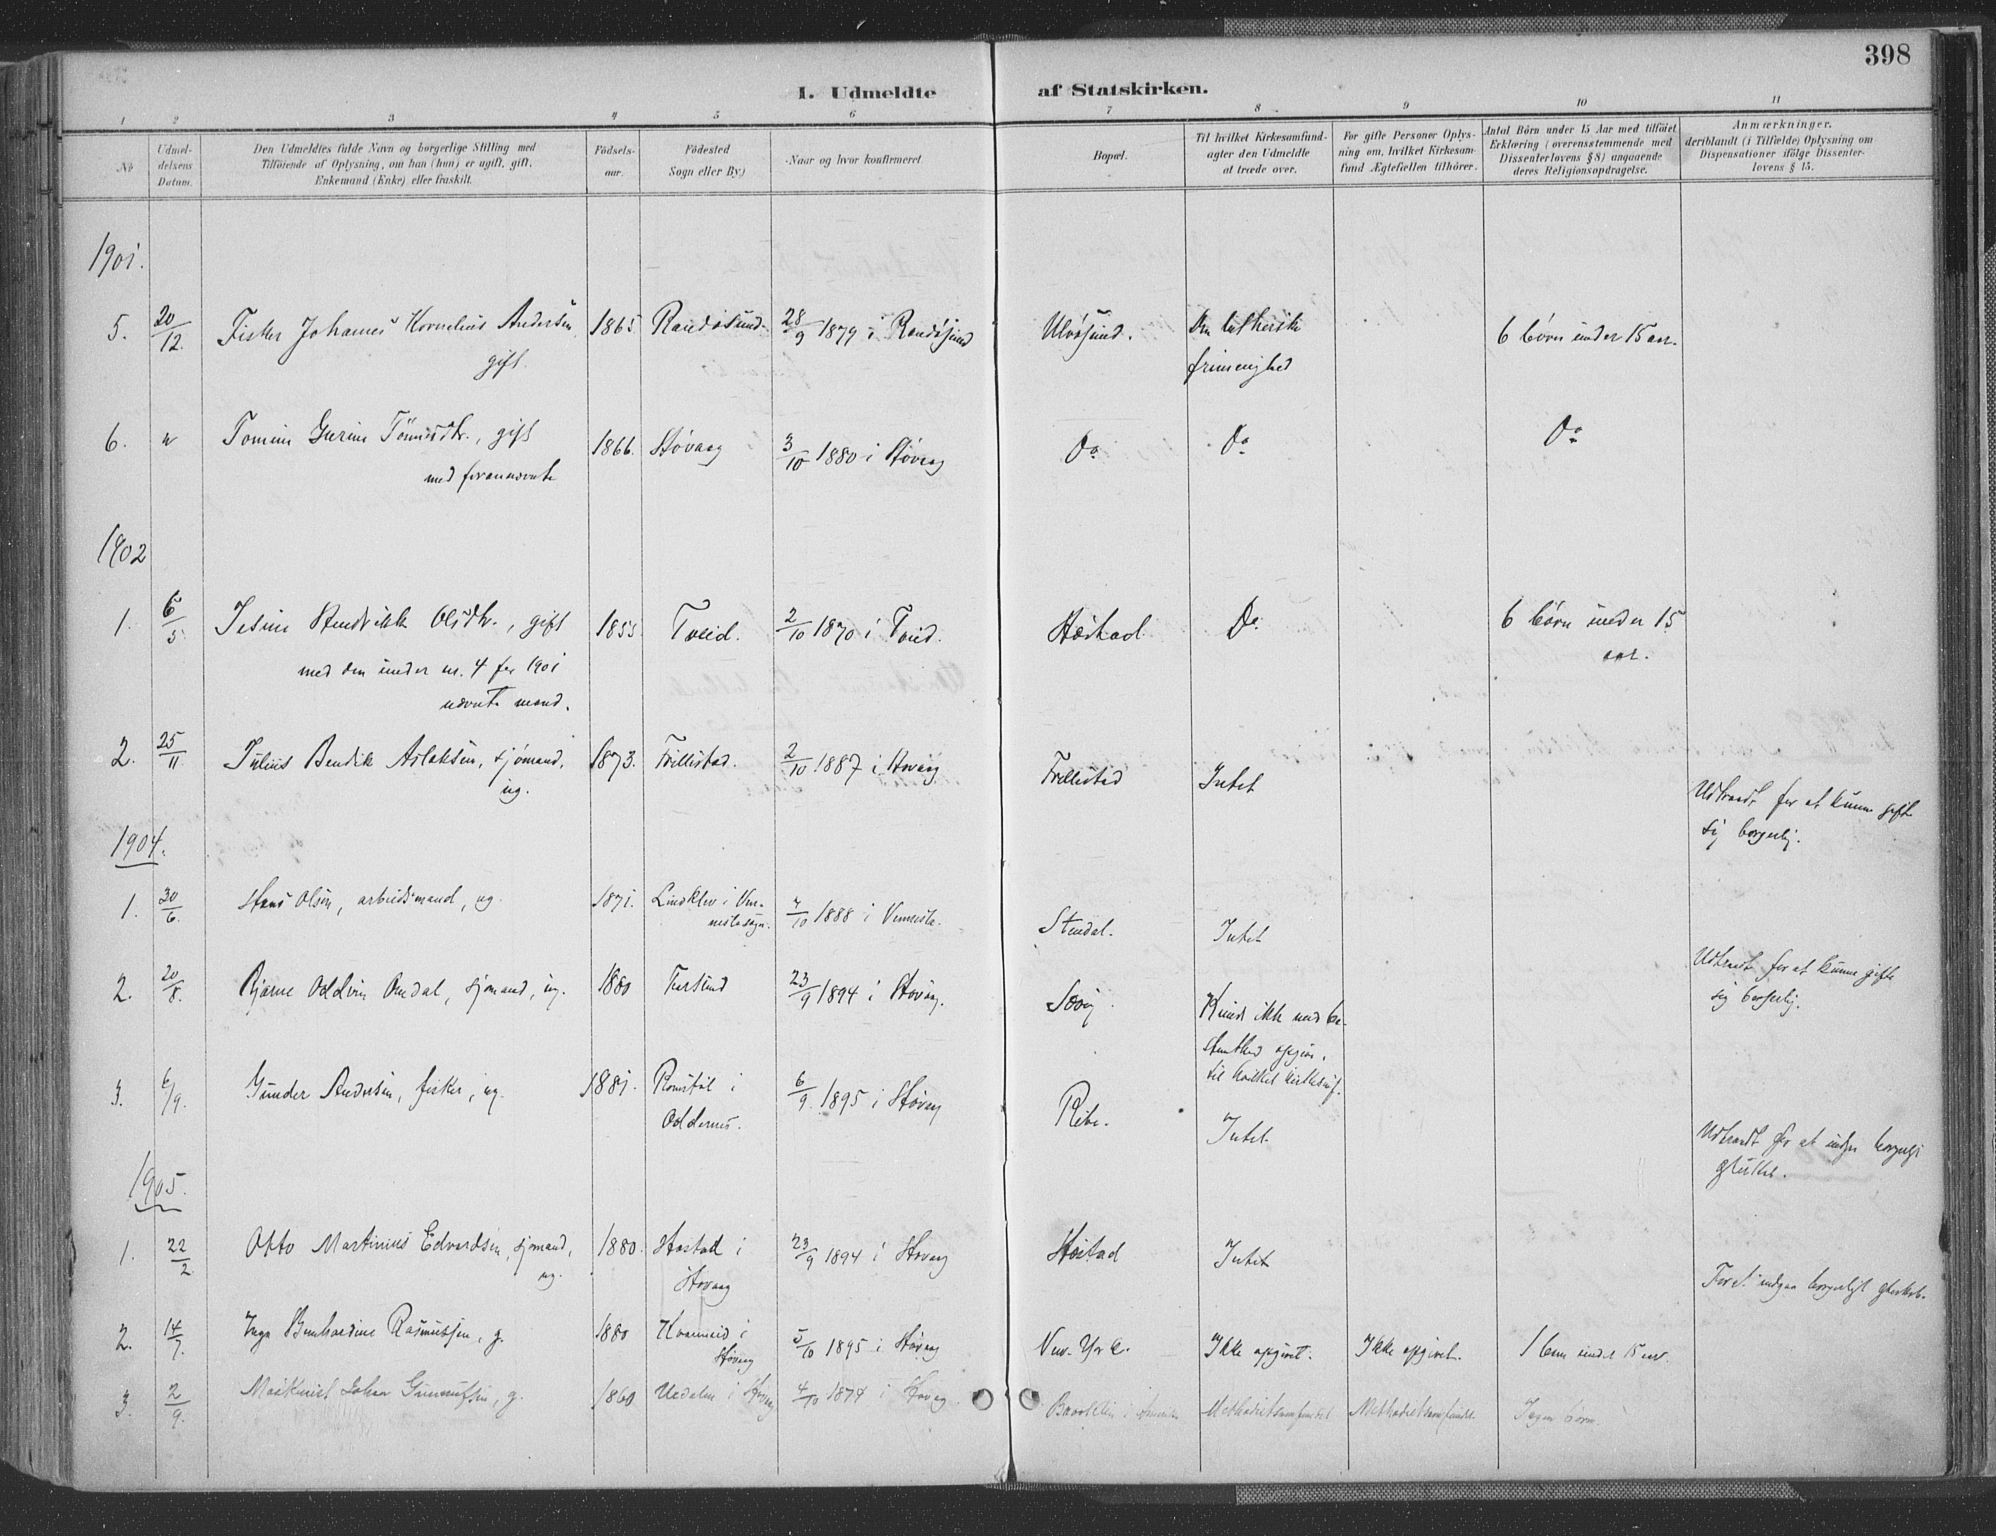 398
I. Udmeldte af Statskirken.
1 2 3 4 5 6 7 8 9 10 11
No
Udmel-
delsens
Datum.
Den Udmeldtes fulde Navn og borgerlige Stilling med
Tilföiende af Oplysning, om han (hun) er ugift, gift,
Enkemand (Enke) eller fraskilt.
Födsels-
aar.
Födested
Sogn eller By)
Naar og hvor konfirmeret.
Bopæl.
Til hvilket Kirkesamfund
agter den Udmeldte
at træde over.
For gifte Personer Oplys-
ning om, hvilket Kirkesam-
fund Ægtefællen tilhörer.
Antal Börn under 15 Aar med tilföiet
Erklæring (overensstemmende med
Dissenterlovens § 8) angaaende
deres Religionsopdragelse.
Anmærkninger,
deriblandt (i Tilfælde) Oplysning om
Dispensationer ifölge Dissenter-
lovens § 15.
1901.
5. 20/12 Fisker Johannes Kornelius Andersen 1865 Randøsund 28/9 1879 i Randøsund Ulvøsund. Den lutherske 6 børn under 15 aar.
gift. frimenighed
6. " Tomine Gurine Tönnesdtr., gift 1866. Høvaag 3/10 1880 i Høvaag Do Do Do
med forannævnte
1902
1. 6/5 Olsdtr., gift 1855 Tveid. 2/10 1870 i Tveid. Hæstad Do 6 børn under 15
med den under nr. 4 for 1901 aar.
nævnte mand.
2. 25/11 Julius Bendik Aslaksen, sjømand, 1873. Trellestad. 2/10 1887 i Høvaag Trællestad Intet
ug.
Udtraadt for at kunne gifte
sig borgerlig.
1904.
1. 30/6. Hans Olsen, arbeidsmand, ug. 1871. i Ven-
neslasogn. /10 1888 i Vennesla. Stendal. Intet
Udtraadt for at kunne gifte
sig borgerlig.
2. 20/8. Bjarne Oddvin Omdal, sjømand, ug. 1880 23/9 1894 i Høvaag. Kunde ikke med be-
stemthed opgive,
til hvilket kirkesamf.
3. 6/9. Gunder Andersen, fisker, ug. 1881. i
Oddernes. 6/9. 1895 i Høvaag Ribe. Intet
Udtraadt for at indgaa borgerligt
1905.
1. 22/2 Otto Martinius Edvardsen, sjømand, 1880. Hæstad i 23/9 1894 i Høvaag Hæstad Intet
ug. Høvaag
For at indgaa borgerligt
2. 14/7. Inga Bernhardine Rasmussen, g. 1880 i 5/10 1895 i Høvaag New-York. Ikke opgivet. Ikke opgivet. 1 barn under 15 aar.
Høvaag
3. 2/9. Maskinist Johan g. 1860 i Høvaag 4/10 1874 i Høvaag i Amerika Methodistsamfundet Methodistsamfundet Ingen børn.